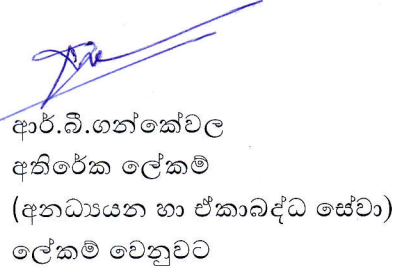 ආර්.බී.ගන්කේවල
අතිරේක ලේකම්
(අනධ්‍යයන හා ඒකාබද්ධ සේවා)
ලේකම් වෙනුවට